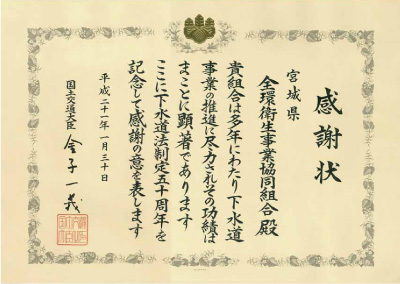 感謝状
宮城県
全環衛生事業協同組合殿
貴組合は多年にわたり下水道
事業の推進に尽力されその功績は
まことに顕著であります
ここに下水道法制定五十周年を
記念して感謝の意を表します
平成二十一年一月三十日
国土交通大臣 金子一義